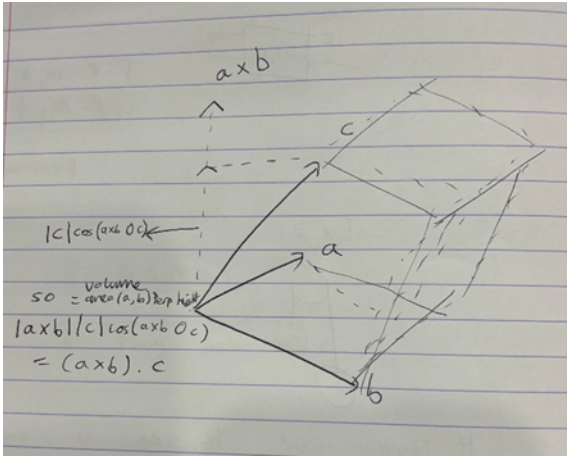 a×b
c
|c|cos(a×b O c)
a
volume
so = area(a,b) Perp height
|a×b||c|cos(a×b O c)
= (a×b) . c
b